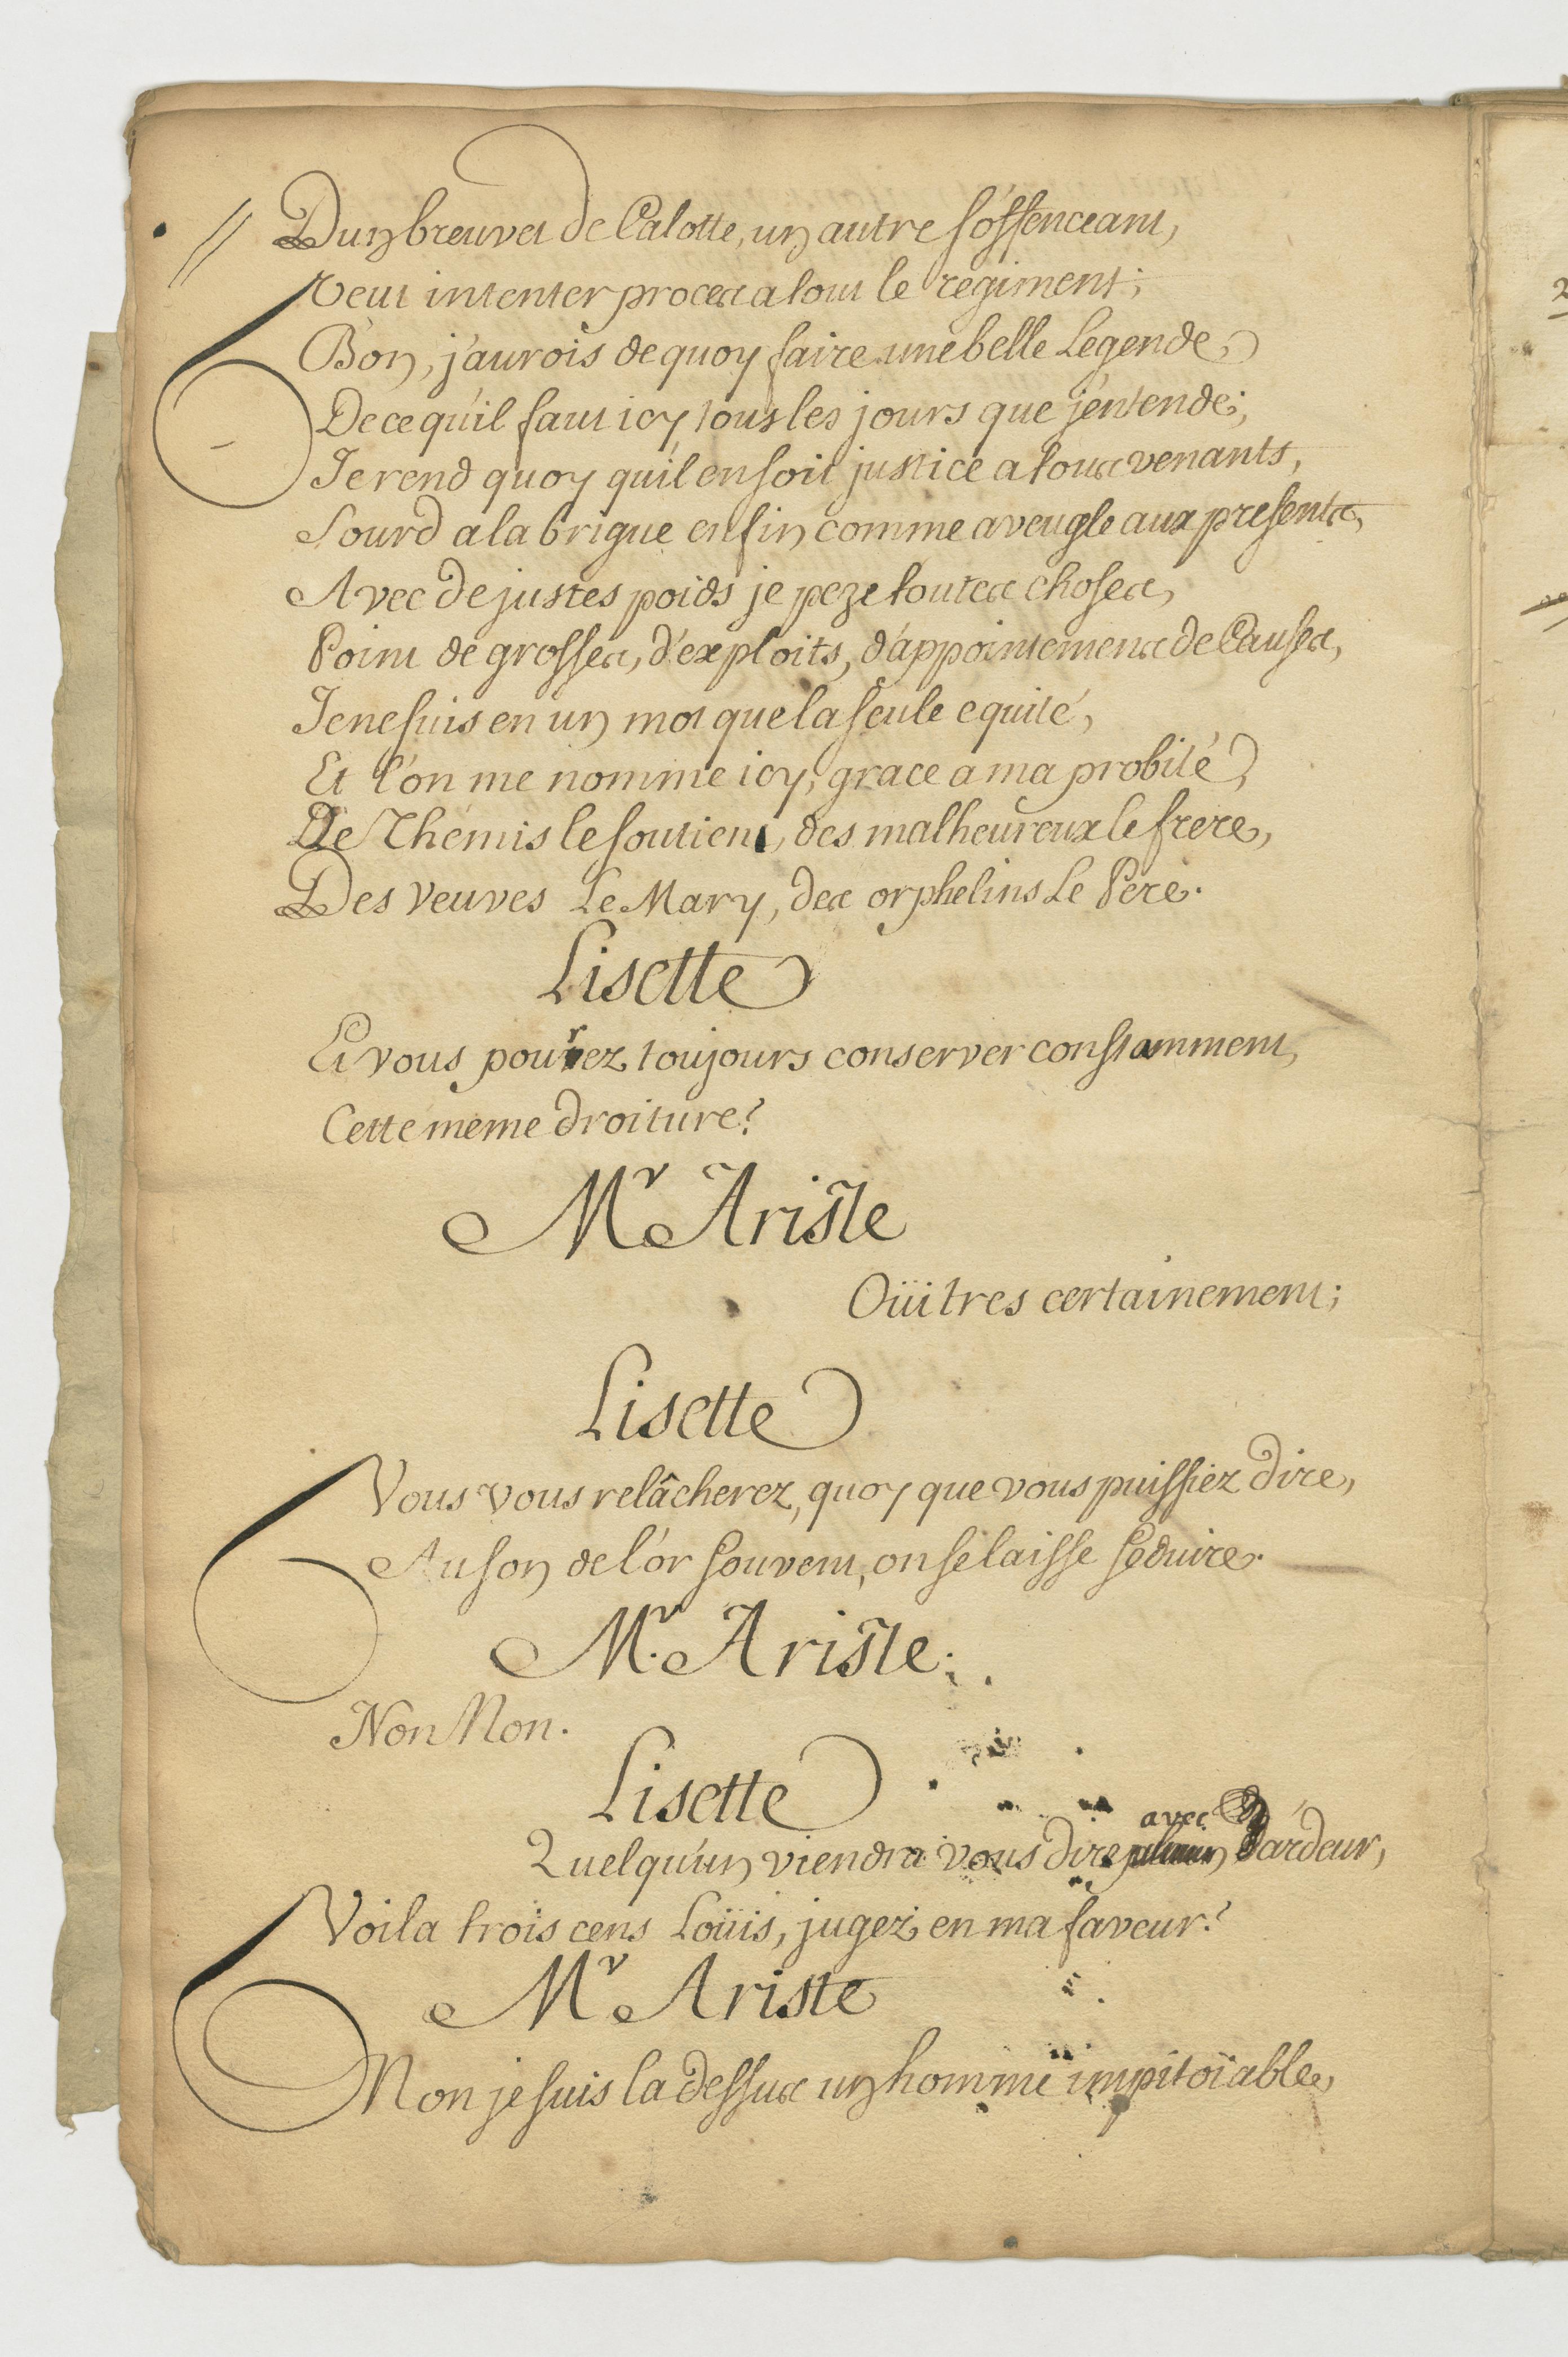 Dun breuvet de Calotte, un autre s'offenceant,
Veut intenter proces a tout le regiment;
Bon, j'aurois de quoy faire une belle Legende,
De ce qu'il faut icy tous les jours que j'entende;
Je rend quoy qu'il en soit justice a tous venants,
Sourd a la brigue enfin comme aveugle aux presents,
Avec de justes poids je peze toutes choses,
Point de grosses, d'exploits, d'appointemens de Causes,
Je ne suis en un mot que la seule equité,
Et l'on me nomme icy, grace a ma probité,
De Themis le soutient, des malheureux le frere,
Des Veuves Le Mary, des orphelins Le Pere.
Lisette
Et vous pourrez toujours conserver constamment,
Cette meme droiture?
Mr Ariste
Oüi tres certainement;
Lisette
Vous vous relâcherez, quoy que vous puissiez dire,
Au son de l'or souvent, on se laisse seduire.
Mr. Ariste.
Non Non.
Lisette
avec
Quelqu'un viendra vous dire d'ardeur,
Voila trois cens Loüis, jugez en ma faveur?
Mr Ariste
Non je suis la dessus un homme impitoïable,
2